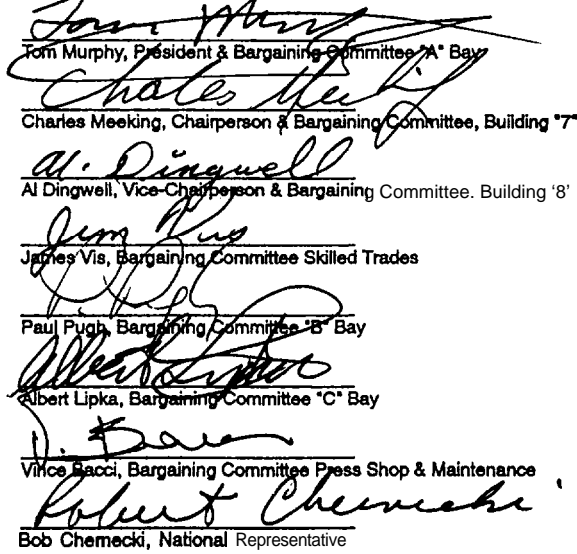 Tom Murphy
Tom Murphy, President & Bargaining Committee "A" Bay
Charles Meeking
Charles Meeking, Chairperson & Bargaining Committee, Building "7"
Al. Dingwell
Al Dingwell, Vice-Chairperson & Bargaining Committee. Building '8'
Jim Vis
James Vis, Bargaining Committee Skilled Trades
Paul Pugh, Bargaining Committee "B" Bay
Albert Lipka
Albert Lipka, Bargaining Committee "C" Bay
V. Bacci
Vince Bacci, Bargaining Committee Press Shop & Maintenance
Robert Chernecki
Bob Chernecki, National Representative